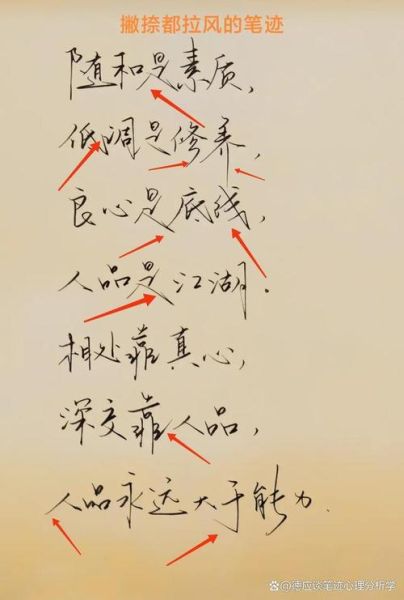 撇捺都拉风的笔迹
随和是素质,
低调是修养,
良心是底线,
人品是江湖.
相处靠真心,
深交靠人品,
人品永远大于能力.
@德应谈笔迹心理分析学